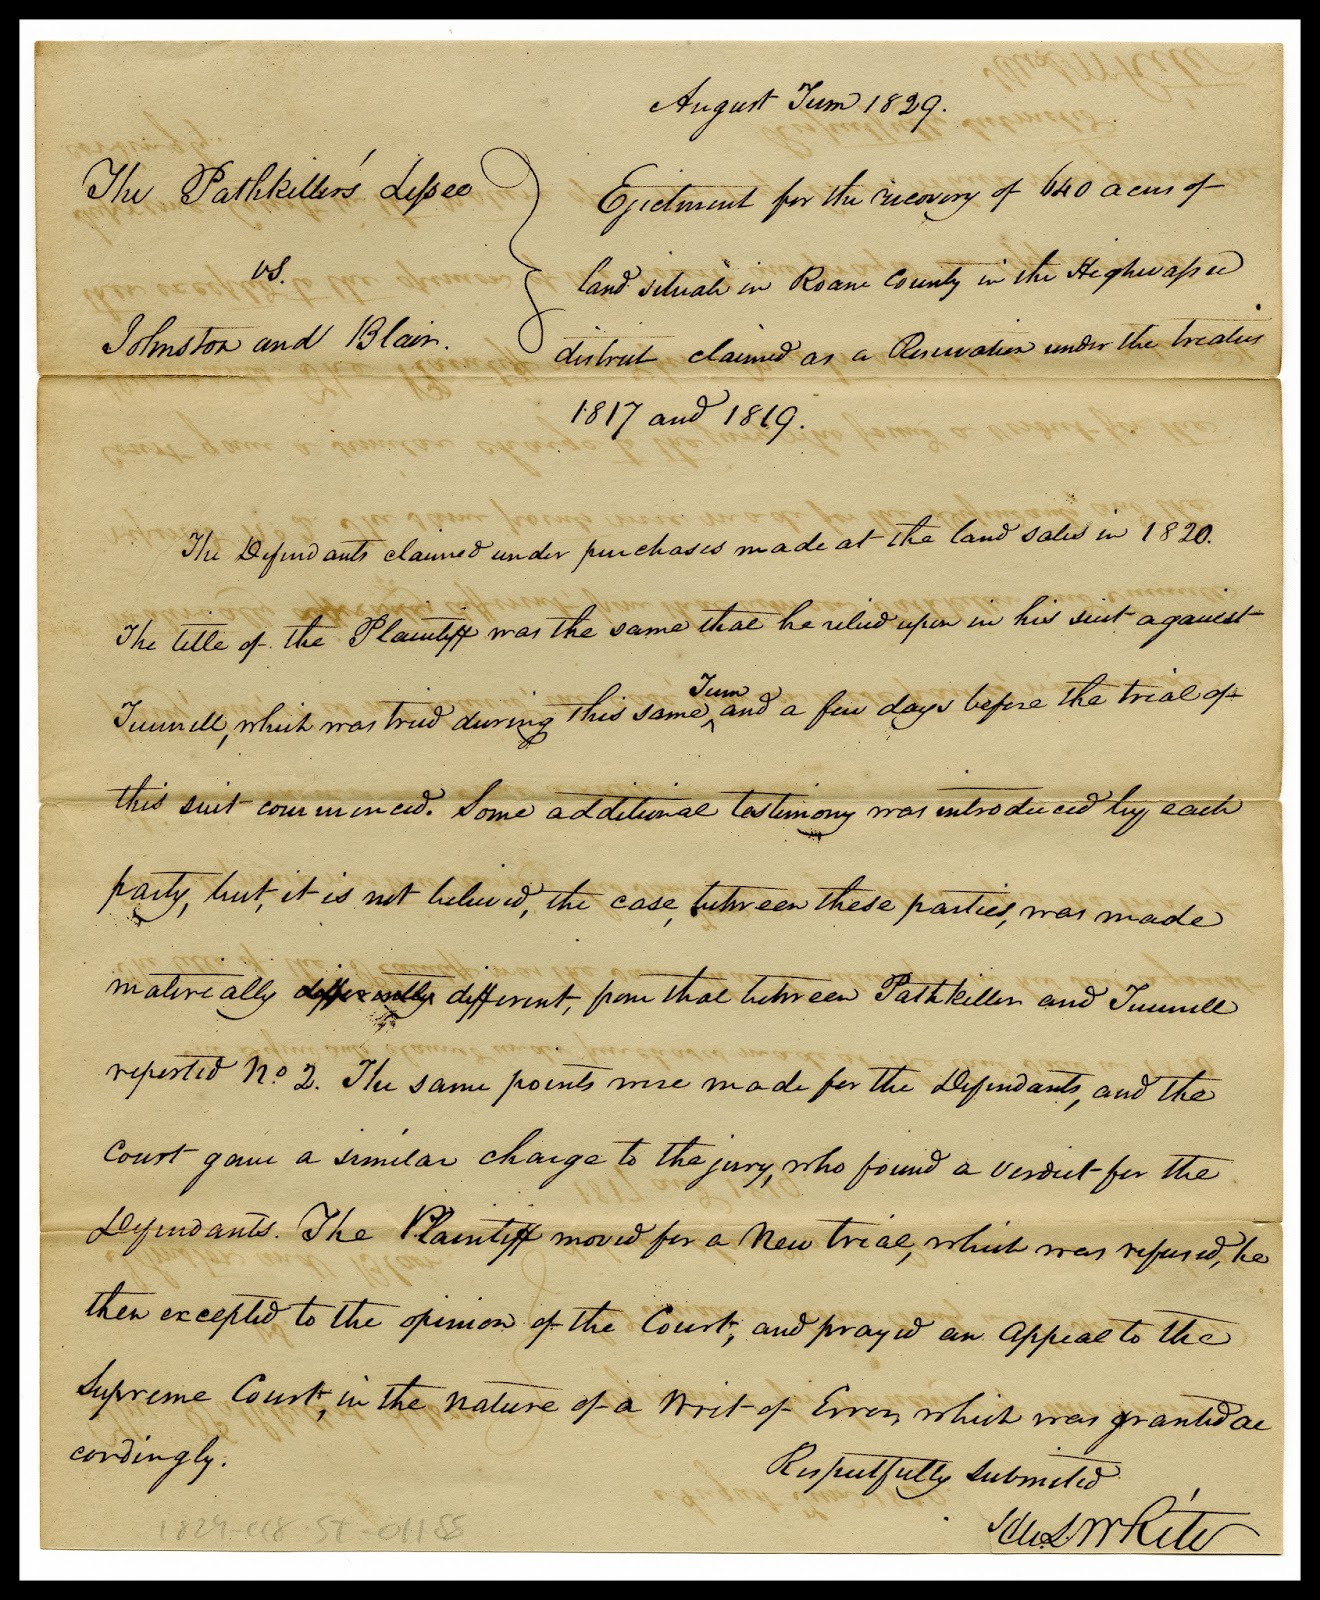 August Term 1829.
The Pathkiller's Lessee
vs.
Johnston and Blair.
Ejectment for the recovery of 640 acres of
land situate in Roane County in the Highwassee
district claimed as a Reservation under the treaties
1817 and 1819.
The Defendants claimed under purchases made at the land sales in 1820.
The title of the Plaintiff was the same that he relied upon in his suit against
Tunnell, which was tried during this same Term and a few days before the trial of
this suit commenced. Some additional testimony was introduced by each
party, but, it is not believed, the case, between these parties, was made
materially differently different, from that between Pathkiller and Tunnell
reported No. 2. The same points were made for the Defendants, and the
Court gave a similar charge to the jury, who found a verdict for the
Defendants. The Plaintiff moved for a New trial, which was refused, he
then excepted to the opinion of the Court, and prayed an Appeal to the
Supreme Court, in the nature of a Writ of Error, which was granted ac
cordingly.
Respectfully submitted
White